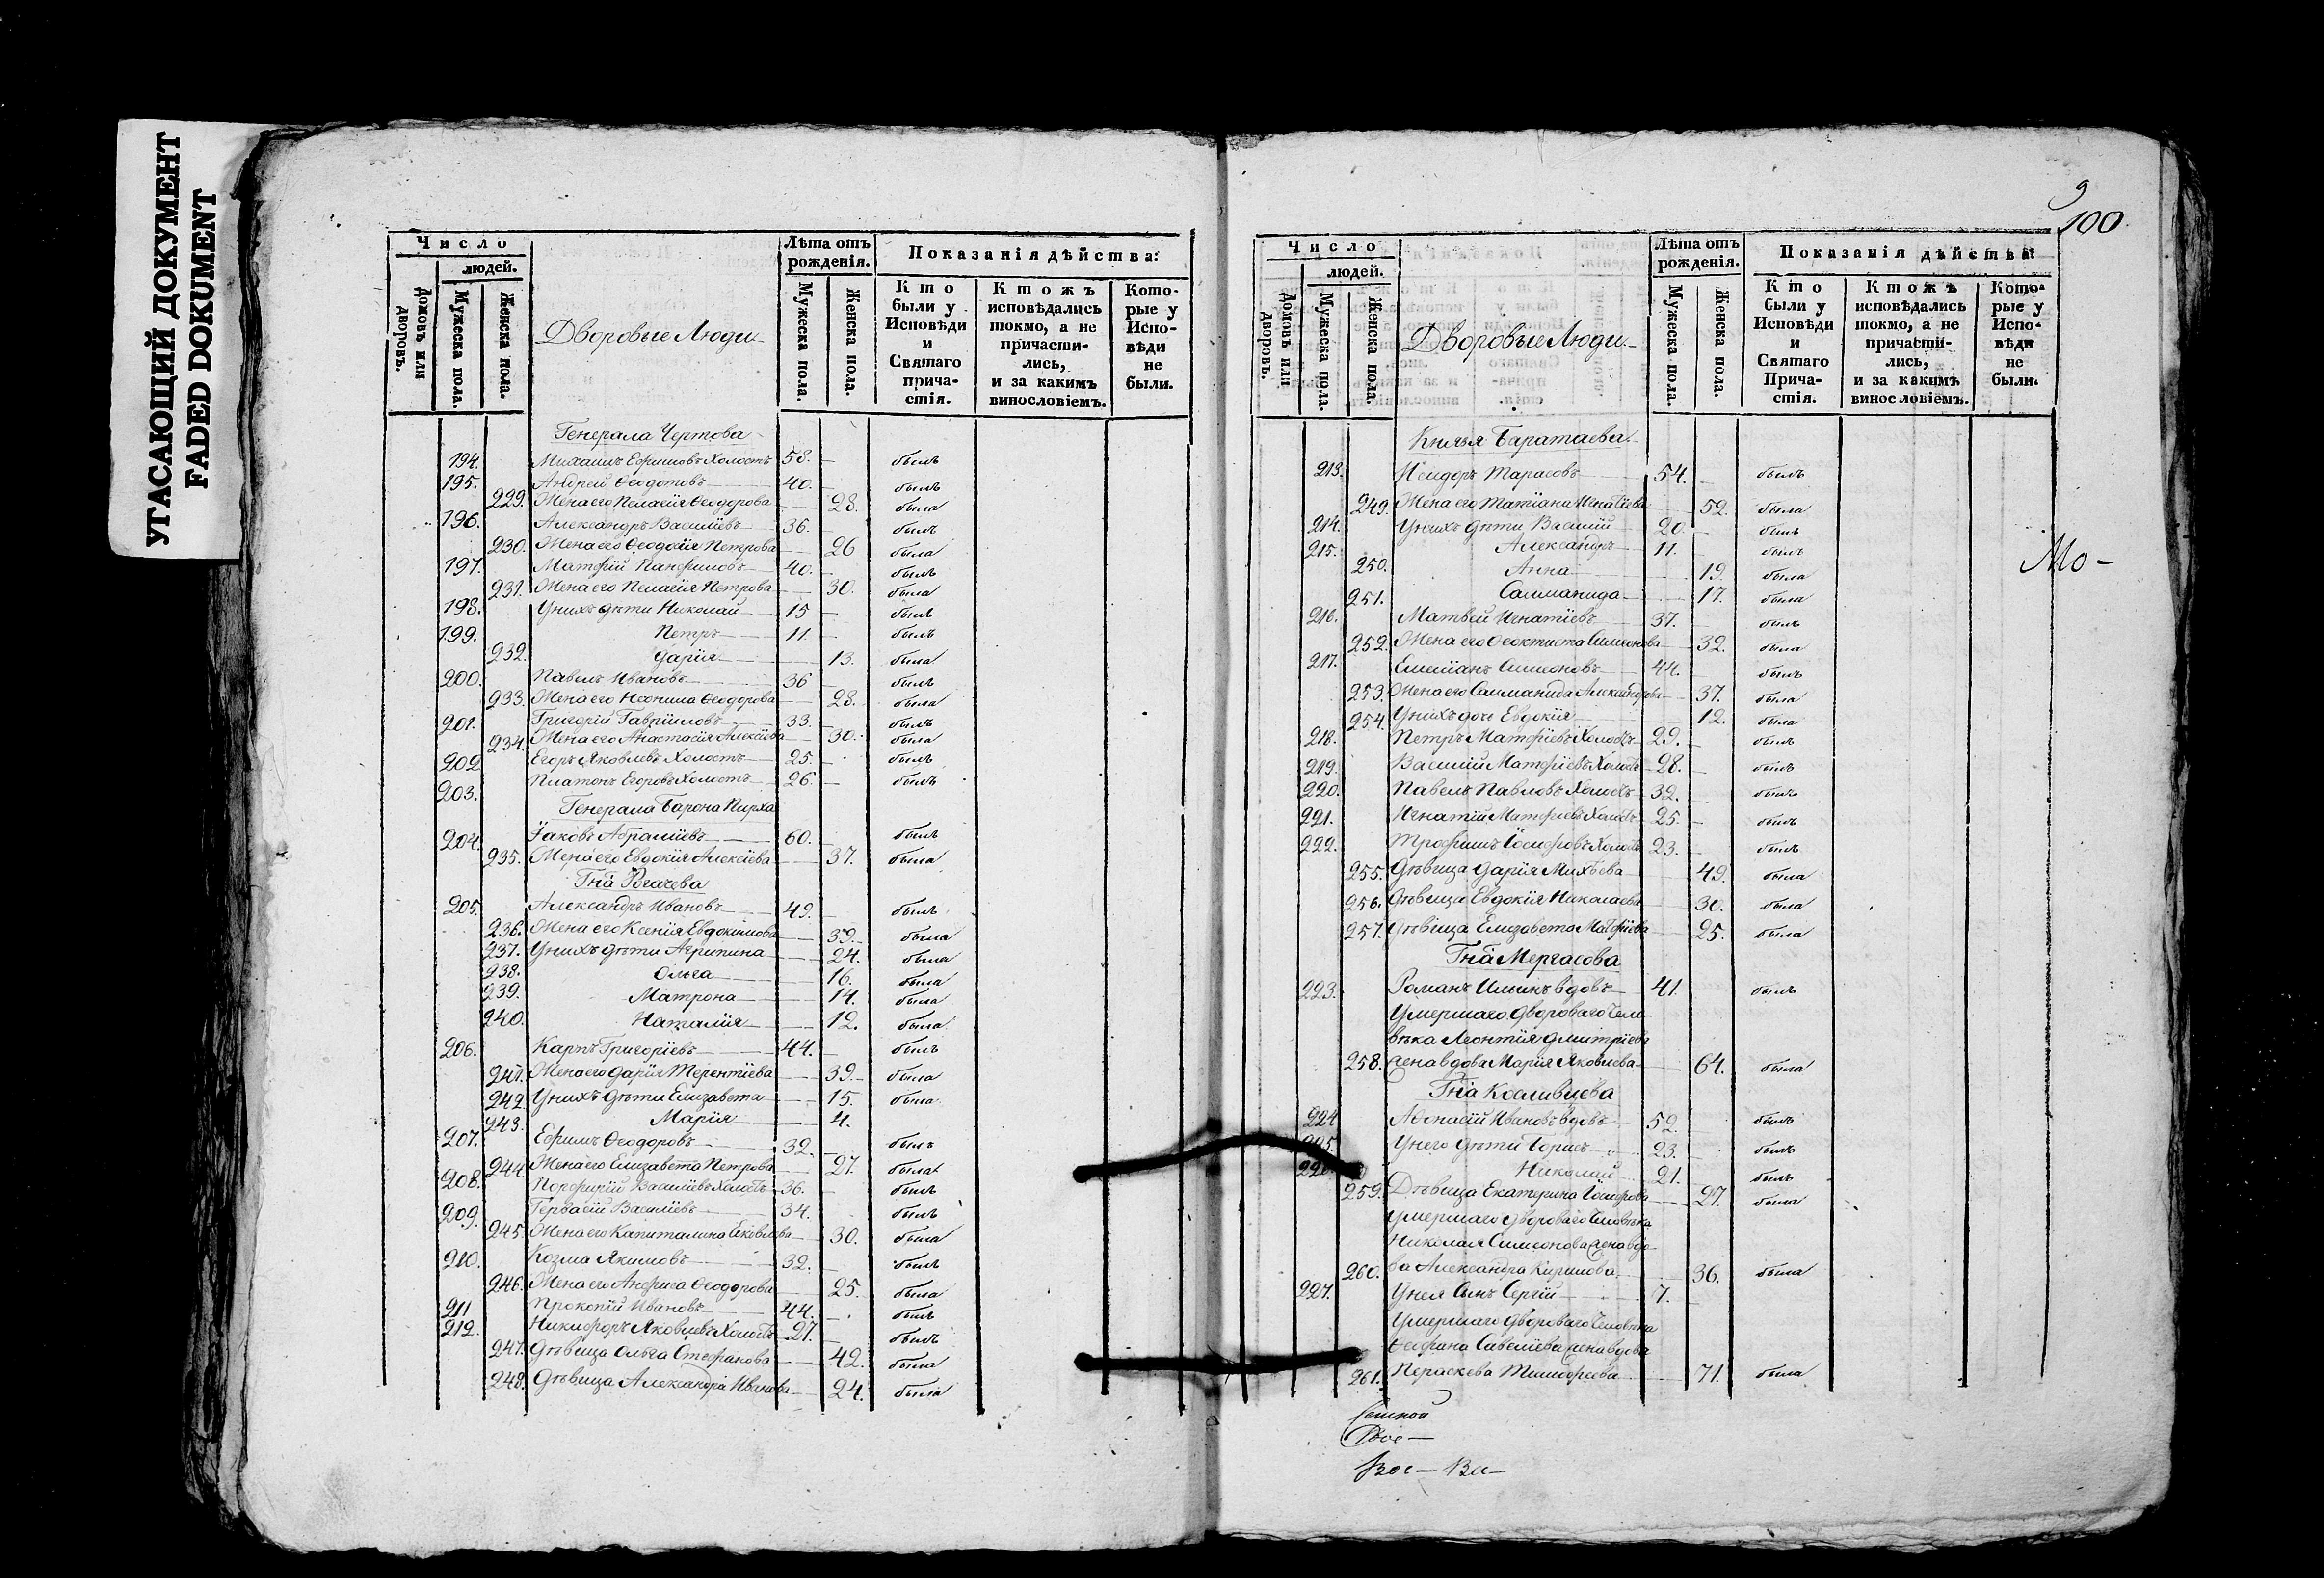 УГАСАЮЩИЙ ДОКУМЕНТ
FADED DOKUMENT
Число
людей.
домовъ или дворовъ.
Мужеска пола.
Женска пола.
Дворовые Люди
Лѣта отъ рожденія.
Мужеска пола.
Женска пола.
Показанія дѣйства:
Кто были у Исповѣди и Святаго причастія.
Ктожъ исповѣдались токмо, а не причастились, и за какимъ винословіемъ.
Которые у Исповѣди не были.
Генерала Чертова
194. Михаилъ Ефимовъ Холостъ 58. былъ
195. Андрей Ѳеодотовъ 40. былъ
229. Жена его Пелагія Ѳеодорова 28. была
196. Александръ Василіевъ 36. былъ
230. Жена его Ѳеодосія Петрова 26 была
197. Матфій Панфиловъ 40. былъ
231. Жена его Пелагія Петрова 30. была
198. Унихъ дѣти Николай 15 былъ
199. Петръ 11. былъ
232. Дарія 13. была
200. Павелъ Ивановъ 36 былъ
233. Жена его Неонила Ѳеодорова 28. была
201. Григорій Гавріиловъ 33. былъ
234. Жена его Анастасія Алексіева 30. была
202 Егоръ Яковлевъ Холостъ 25. былъ
203. Платонъ Егоровъ Холостъ 26. былъ
Генерала Барона Пирха
204. Іаковъ Абраміевъ 60. былъ
235. Жена его Евдокія Алексіева 37. была
Гна Рогачева
205. Александръ Ивановъ 49. былъ
236. Жена его Ксенія Евдокимова 39. была
237. Унихъ дѣти Агрипина 24. была
238. Ольга 16. была
239. Матрона 14. была
240. Наталія 12. была
206. Карпъ Григоріевъ 44. былъ
241. Жена его Дарія Терентіева 39. была
242. Унихъ дѣти Елизавета 15. была
243. Марія 4.
207. Ефимъ Ѳеодоровъ 32. былъ
244. Жена его Елизавета Петрова 27. была
208. Порфирій Василіевъ Холостъ 36. былъ
209. Гервасій Василіевъ 34. былъ
245. Жена его Капиталина Яковлева 30. была
210. Козма Якимовъ 32. былъ
246. Жена его Анфиса Ѳеодорова 25. была
211 Прокопій Ивановъ 44. былъ
212. Никифоръ Яковлевъ Холостъ 27. былъ
247. Дѣвица Ольга Стефанова 42. была
248. Дѣвица Александра Иванова 24. была
9
100
Число
людей.
домовъ или дворовъ.
Мужеска пола.
Женска пола.
Дворовые Люди
Лѣта отъ рожденія.
Мужеска пола.
Женска пола.
Показанія дѣйства:
Кто были у Исповѣди и Святаго Причастія.
Ктожъ исповѣдались токмо, а не причастились, и за какимъ винословіемъ.
Которые у Исповѣди не были.
Князя Баратаева
213. Исидоръ Тарасовъ 54. былъ
249. Жена его Татіана Игнатіева 52. была
214. Унихъ дѣти Василій 20. былъ
215. Александръ 11. былъ
Мо-
250. Анна 19. была
251. Саломанида 17. была
216. Матвей Игнатіевъ 37. былъ
252. Жена его Ѳеоктиста Симеонова 32. была
217. Емиліанъ Симеоновъ 44. былъ
253. Жена его Саломанида Александрова 37. была
254. Унихъ дочь Евдокія 12. была
218. Петръ Матфіевъ Холостъ 29. былъ
219. Василій Матфіевъ Холостъ 28. былъ
220. Павелъ Павловъ Холостъ 32. былъ
221. Игнатій Матфіевъ Холостъ 25. былъ
222. Трофимъ Іосифовъ Холостъ 23. былъ
255. Дѣвица Дарія Михѣева 49. была
256. Дѣвица Евдокія Николаева 30. была
257. Дѣвица Елизавета Матфіева 25. была
Гна Мергасова
223. Романъ Ильинъ вдовъ 41. былъ
Умершаго дворового чело
вѣка Леонтія Дмитріева
258. жена вдова Марія Яковлева 64. была
Гна Косливцева
224 Аѳонасій Ивановъ вдовъ 52. былъ
225. Унего дѣти Борисъ 23. былъ
226. Николай 21. былъ
259. Дѣвица Екатерина Іосифова 27. была
Умершаго дворового человѣка
Николая Симеонова жена вдо
260. ва Александра Кирилова 36. была
227. Унея сынъ Сергій 7.
Умершаго дворового человѣка
Ѳеофана Савеліева жена вдова
261. Параскева Тимофеева 71. была